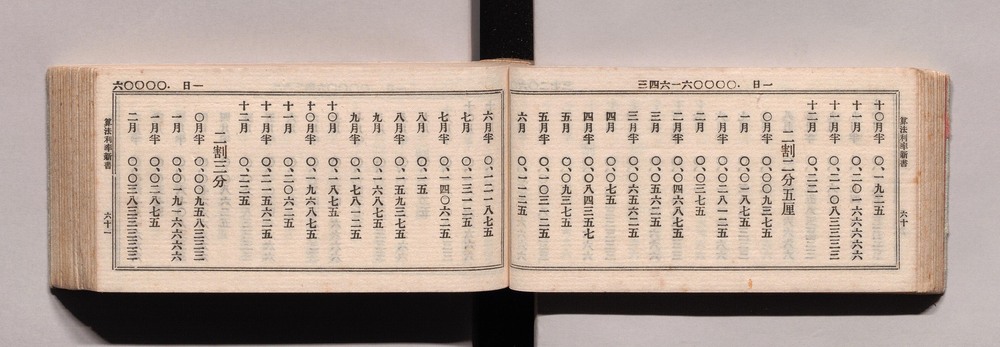 一日 .〇〇〇〇六一六四三
算法利率新書 六十
十〇月半 〇、一九二五
十一月 〇、二〇一六六六六六
十一月半 〇、二一〇八三三三三
十二月 〇、二二
二割二分五厘
〇月半 〇、〇〇九三七五
一月 〇、〇一八七五
一月半 〇、〇二八一二五
二月 〇、〇三七五
二月半 〇、〇四六八七五
三月 〇、〇五六二五
三月半 〇、〇六五六二五
四月 〇、〇七五
四月半 〇、〇八四三五七
五月 〇、〇九三七五
五月半 〇、一〇三一二五
六月 〇、一一二五
一日 .〇〇〇〇六
六月半 〇、一二一八七五
七月 〇、一三一二五
七月半 〇、一四〇六二五
八月 〇、一五
八月半 〇、一五九三七五
九月 〇、一六八七五
九月半 〇、一七八一二五
十〇月 〇、一八七五
十〇月半 〇、一九六八七五
十一月 〇、二〇六二五
十一月半 〇、二一五六二五
十二月 〇、二二五
二割三分
〇月半 〇、〇〇九五八三三三
一月 〇、〇一九一六六六六
一月半 〇、〇二八七五
二月 〇、〇三八三三三三三
算法利率新書 六十一